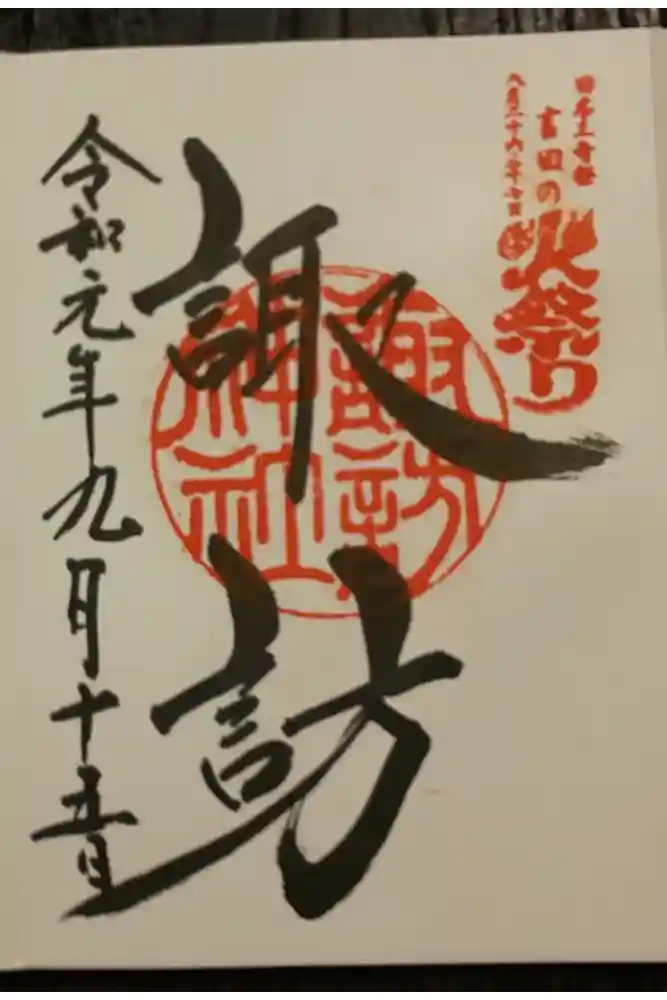 日本三奇祭
吉田の
火祭り
八月二十六・二十七日
諏訪
諏訪
神社
令和元年九月十五日